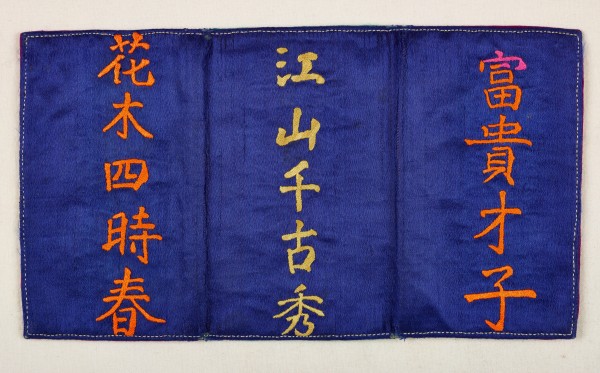 富貴才子
江山千古秀
花木四時春